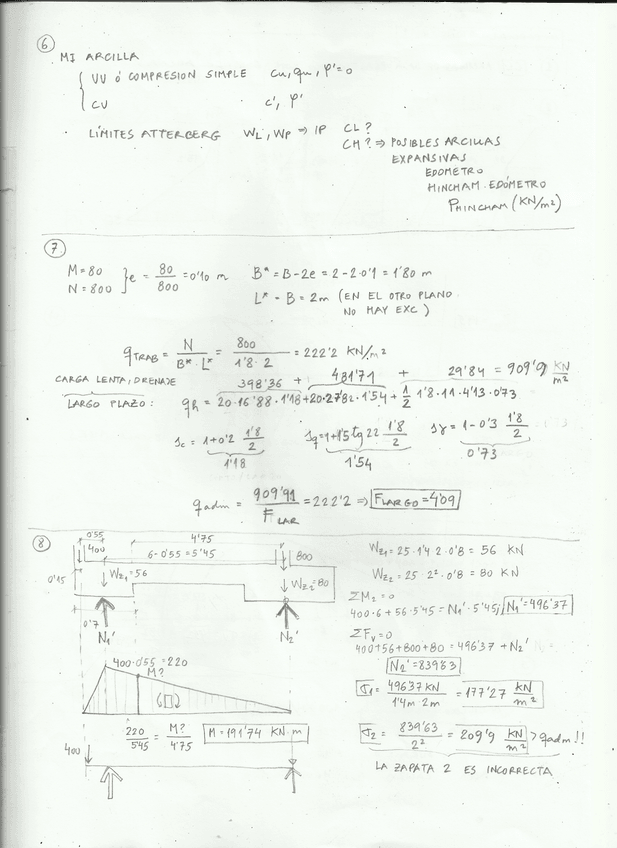 6
MI ARCILLA
UU Ó COMPRESION SIMPLE Cu, qu, φ'=0
CU c', φ'
· LÍMITES ATTERBERG WL, WP ⇒ IP CL?
CH? ⇒ POSIBLES ARCILLAS
EXPANSIVAS
EDOMETRO
HINCHAM. EDÓMETRO
PHINCHAM (KN/m²)
7
M=80
N=800 } e = 80/800 = 0'10 m B* = B-2e = 2-2·0'1 = 1'80 m
L* = B = 2m (EN EL OTRO PLANO
NO HAY EXC)
qTRAB = N/(B*·L*) = 800/(1'8·2) = 222'2 KN/m²
CARGA LENTA, DRENAJE 398'36 + 481'71 + 29'84 = 909'91 KN/m²
LARGO PLAZO: qh = 20·16'88·1'18 + 20·2'782·1'54 + 1/2 1'8·11·4'13·0'73
sc = 1+0'2 1'8/2 sq = 1+1'5 tg 22 1'8/2 sγ = 1-0'3 1'8/2
1'18 1'54 0'73
qadm = 909'91/FLAR = 222'2 ⇒ FLARGO = 4'09
8
0'55 4'75
400 6-0'55 = 5'45 800
0'15 WZ1 = 56 WZ2 = 80
0'7
N1' N2'
400·0'55 = 220
M?
220/5'45 = M?/4'75 M = 191'74 KN·m
400
WZ1 = 25·1'4·2·0'8 = 56 KN
WZ2 = 25·2²·0'8 = 80 KN
ΣM2 = 0
400·6 + 56·5'45 = N1'·5'45; N1' = 496'37
ΣFV = 0
400+56+800+80 = 496'37 + N2'
N2' = 839'63
σ1 = 496'37 KN/(1'4m·2m) = 177'27 KN/m²
σ2 = 839'63/2² = 209'9 KN/m² > qadm!!
LA ZAPATA 2 ES INCORRECTA